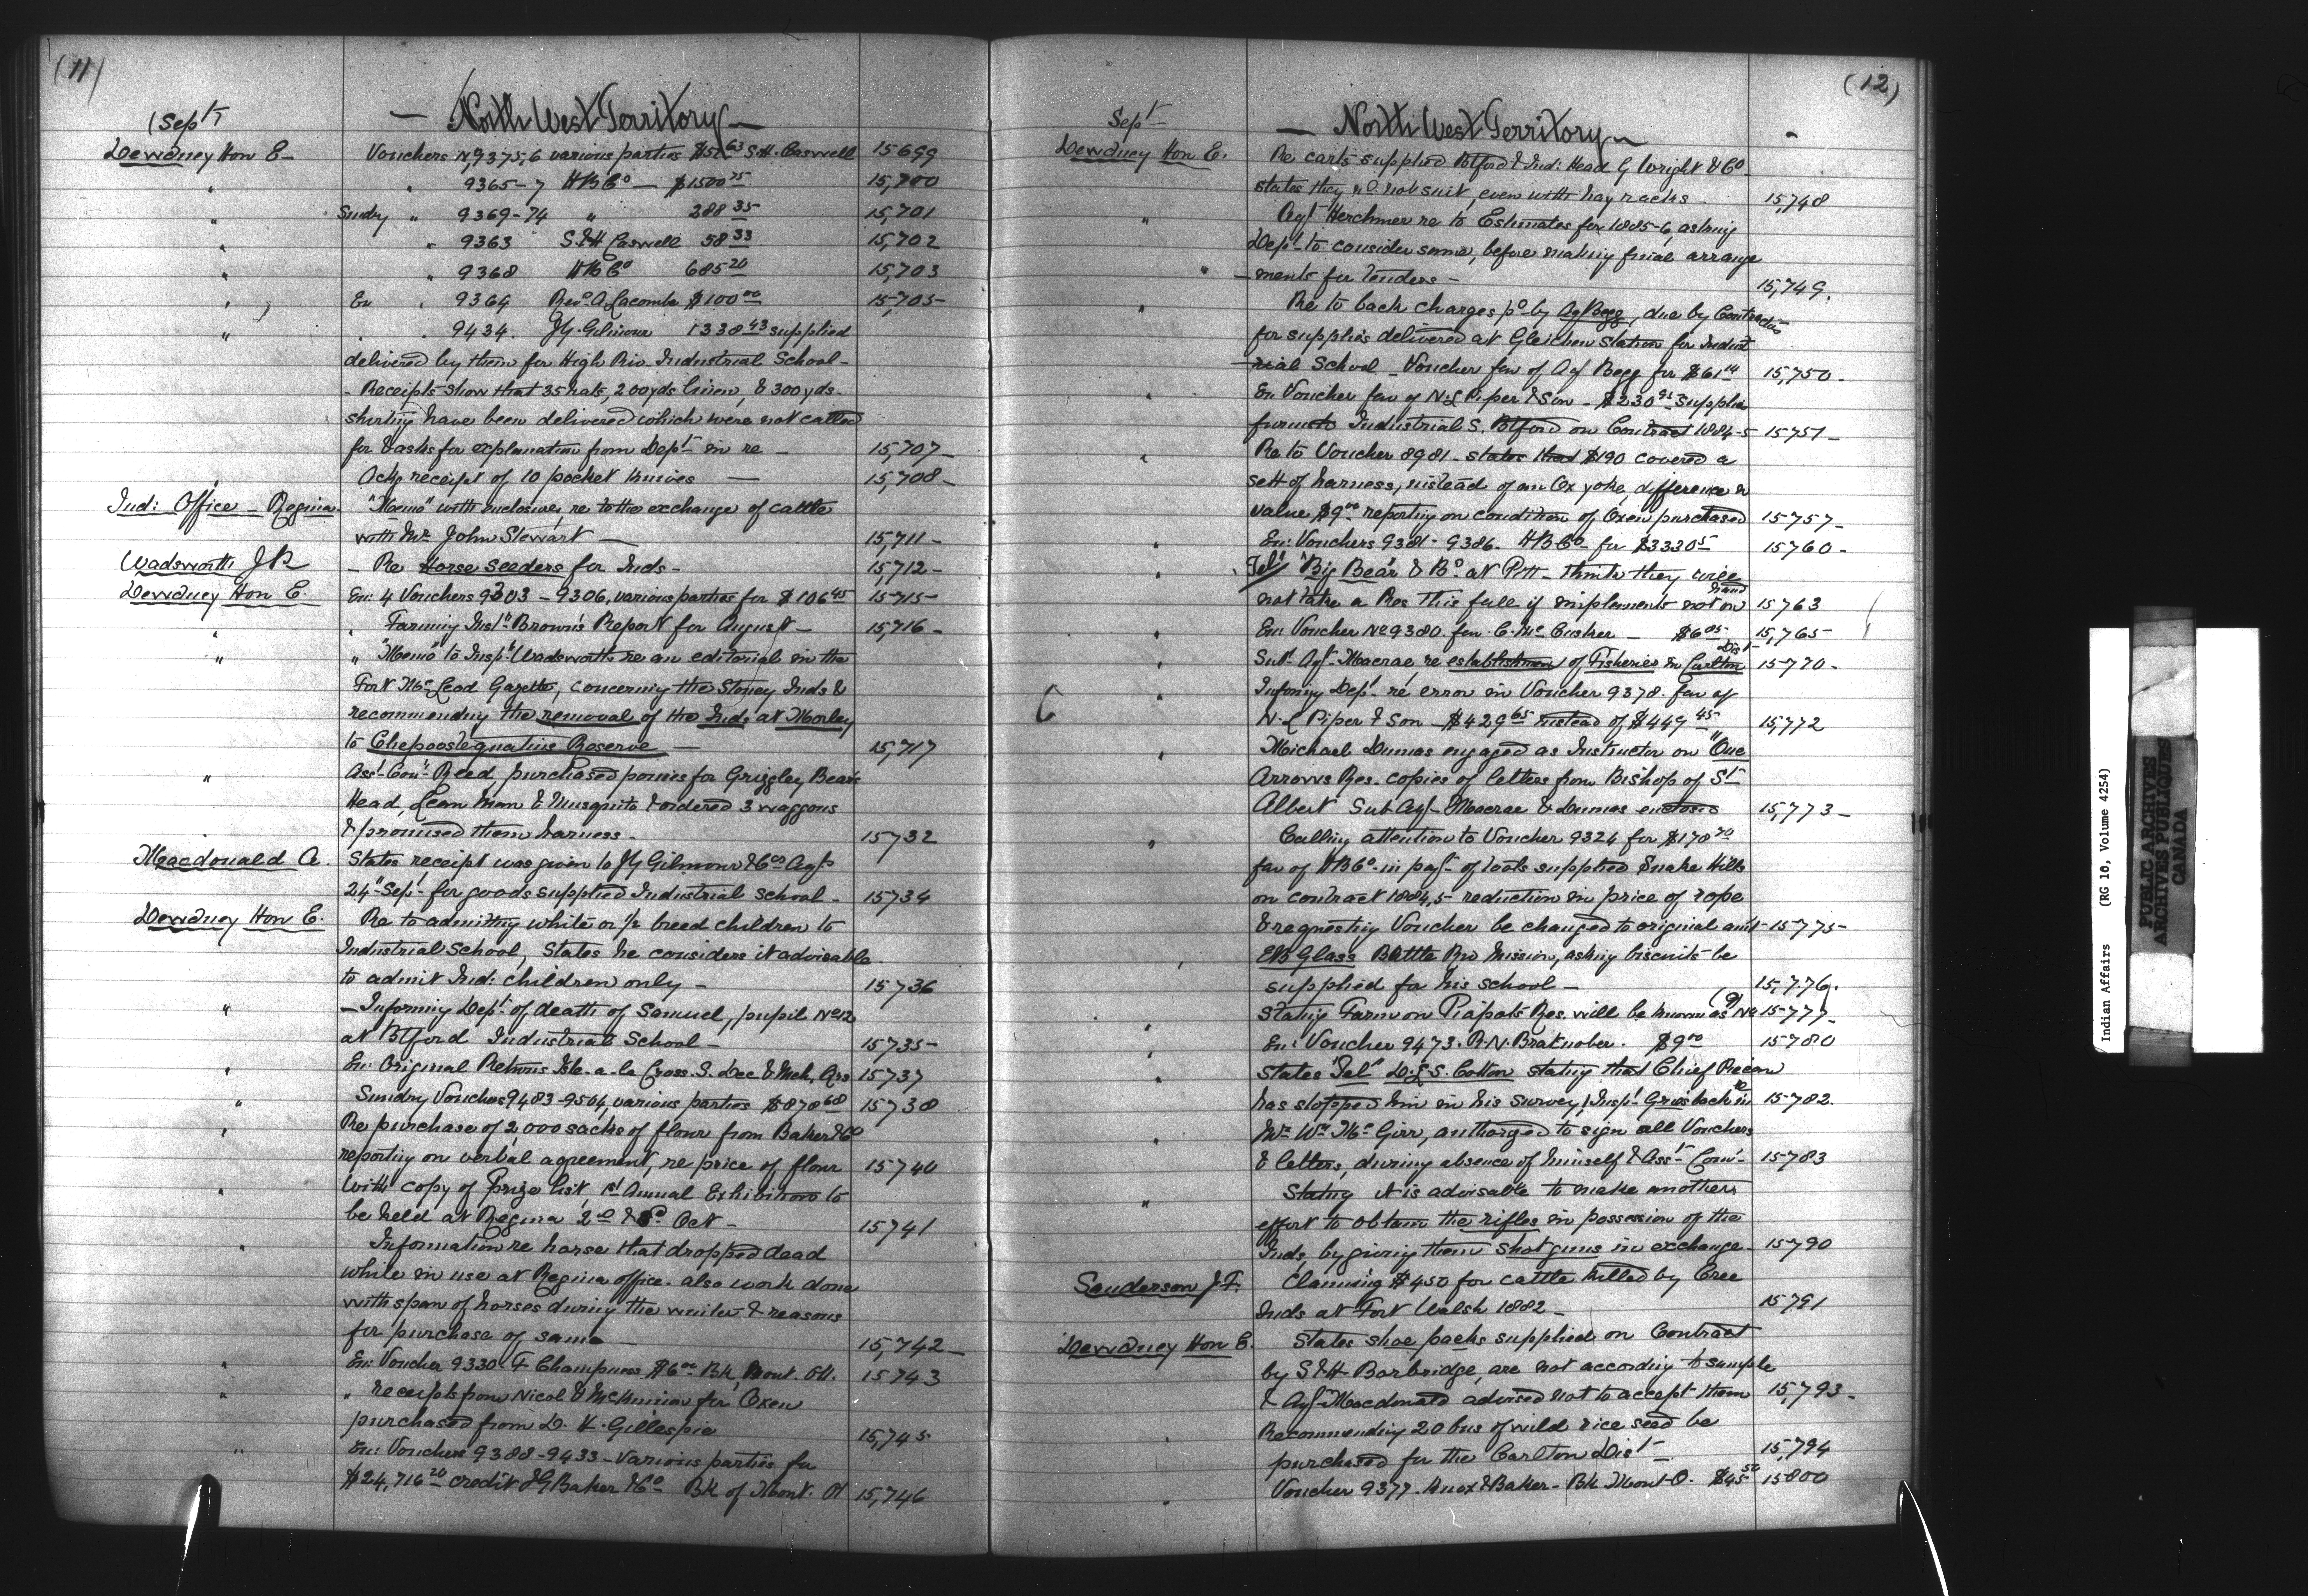 (11)
Sept
— North West Territory —
Dewdney Hon E— Vouchers No 9375,6 various parties S.H. Caswell 15699
" " 9365-7 HBCo — $1500 75 15,700
" Sundry " 9369-74 " 288 35 15,701
" " 9363 S&H Caswell 58 33 15,702
" " 9368 HBCo 685 20 15,703
" En " 9364 Revd A. Lacombe $100 00 15,705
" " 9434. J.Y. Gilmour 1338 43 supplied
delivered by them for High Riv. Industrial School—
- Receipts show that 35 hats, 200 yds linen, & 300 yds.
shirting have been delivered which were not called
for & asks for explanation from Dept in re — 15,707
Ackg receipt of 10 pocket knives — 15,708
Ind: Office — Regina "Memo" with enclosures, re to the exchange of cattle
with Mr John Stewart — 15,711
Wadsworth J.P. — Re horse seeders for Inds — 15,712
Dewdney Hon E. En: 4 Vouchers 9303 – 9306, various parties for $106 45 15715
" " Farming Inst. Brown's Report for August — 15,716
" " "Memo" to Insp. Wadsworth re an editorial in the
Fort McLeod Gazette, concerning the Stoney Inds &
recommending the removal of the Inds at Morley
to Chepoostequatins Reserve — 15,717
" Asst Com Reed, purchased ponies for Grizzley Bears
Head, Lean Man & Musquito & ordered 3 waggons
& promised them harness. 15732
Macdonald A. States receipt was given to JY Gilmour & Co Agts
24" Sept for goods supplied Industrial School — 15734
Dewdney Hon E. Re to admitting white or ½ breed children to
Industrial School, States he considers it advisable
to admit Ind: children only — 15736
" — Informing Dept of death of Samuel, pupil No 12
at Btford Industrial School — 15735
" En: Original Returns Isle-a-la Cross. S. Dec & Mch, Qrs 15737
" Sundry Vouchers 9483-9504, various parties $878 68 15738
" Re purchase of 2,000 sacks of flour from Baker & Co
reporting on verbal agreement, re price of flour 15740
" With copy of Prize list 1st Annual Exhibition to
be held at Regina Oct — 15741
" Information re horse that dropped dead
while in use at Regina office. also work done
with span of horses during the winter & reasons
for purchase of same 15,742
" En: Voucher 9330. F. Champness $6 00 Bk Mont. Ott. 15743
" " receipts from Nicol & McKinnon for Oxen
purchased from D. H. Gillespie 15,745
" En: Vouchers 9388-9433 - Various parties for
$24,716 20 credit JG Baker & Co Bk of Mont. Ot 15,746
(12)
Sept
— North West Territory —
Dewdney Hon E. Re carts supplied Btford & Ind: Head G Wright & Co
states they wd not suit, even with hay racks 15,748
" Agt Herchmer re to Estimates for 1885-6, asking
Dept to consider same, before making final arrange
ments for tenders — 15,749.
" Re to back charges pd by Agt Begg, due by Contractors
for supplies delivered at Gleichen Station for Indust
rial School — Voucher fav of Agt Begg for $61 14 15,750
" En Voucher fav of N.L. Piper & Son — $230 supplies
furnishd Industrial S. Btford on Contract 1884-5 15751
" Re to Voucher 8981 – states that $190 covered a
sett of harness, instead of an Ox yoke, difference in
value $9 00 reporting on condition of Oxen purchased 15757
" En: Vouchers 9381 - 9386. HBCo for $3330 5 15760
" Tel! "Big Bear & Bd at Pitt — thinks they will
not take a Res this fall if implements not on hand 15763
" En: Voucher No 9380. fav. C. McCusker — $6 85 15,765
" Sub Agt Macrae, re establishment of Fisheries in Carlton Dist 15770
" Informg Dept re error in Voucher 9378. fav of
N.L Piper & Son — $429 65 instead of $449 45 15,772
" Michael Dumas engaged as Instructor on "One
Arrows Res. copies of letters from Bishop of St
Albert Sub Agt Macrae & Dumas enclosed 15,773
" Calling attention to Voucher 9324 for $178 70
fav of HBCo in payt of tools supplied Snake Hills
on contract 1884,5 – reduction in price of rope
& requesting Voucher be changed to original amt 15775
" EB Glass Battle Riv Mission, asking biscuits be
supplied for his school — 15,776.
" Stating Farm on Piapots Res. will be known as No (9) 15777
" En: Voucher 9473. R.N. Bratnober. $9 00 15780
" States "Tel" D.L.S. Cotton stating that Chief
has stopped him in his survey, Insp 15782.
" Mr Wm McGirr, authorized to sign all Vouchers
& letters, during absence of himself & Asst Com 15783
" Stating it is advisable to make another
effort to obtain the rifles in possession of the
Inds, by giving them shot guns in exchange 15790
Sanderson J.F. Claiming $450 for cattle killed by Cree
Inds at Fort Walsh 1882 — 15791
Dewdney Hon E. States shoe packs supplied on Contract
by S&H Borbridge, are not according to sample
& Agt Macdonald advised not to accept them 15,793
" Recommending 20 bus of wild rice seed be
purchased for the Carlton Dist — 15,794
" Voucher 9377. Knox & Baker – Bk Mont O. $45 50 15800
Indian Affairs (RG 10, Volume 4254)
PUBLIC ARCHIVES
ARCHIVES PUBLIQUES
CANADA